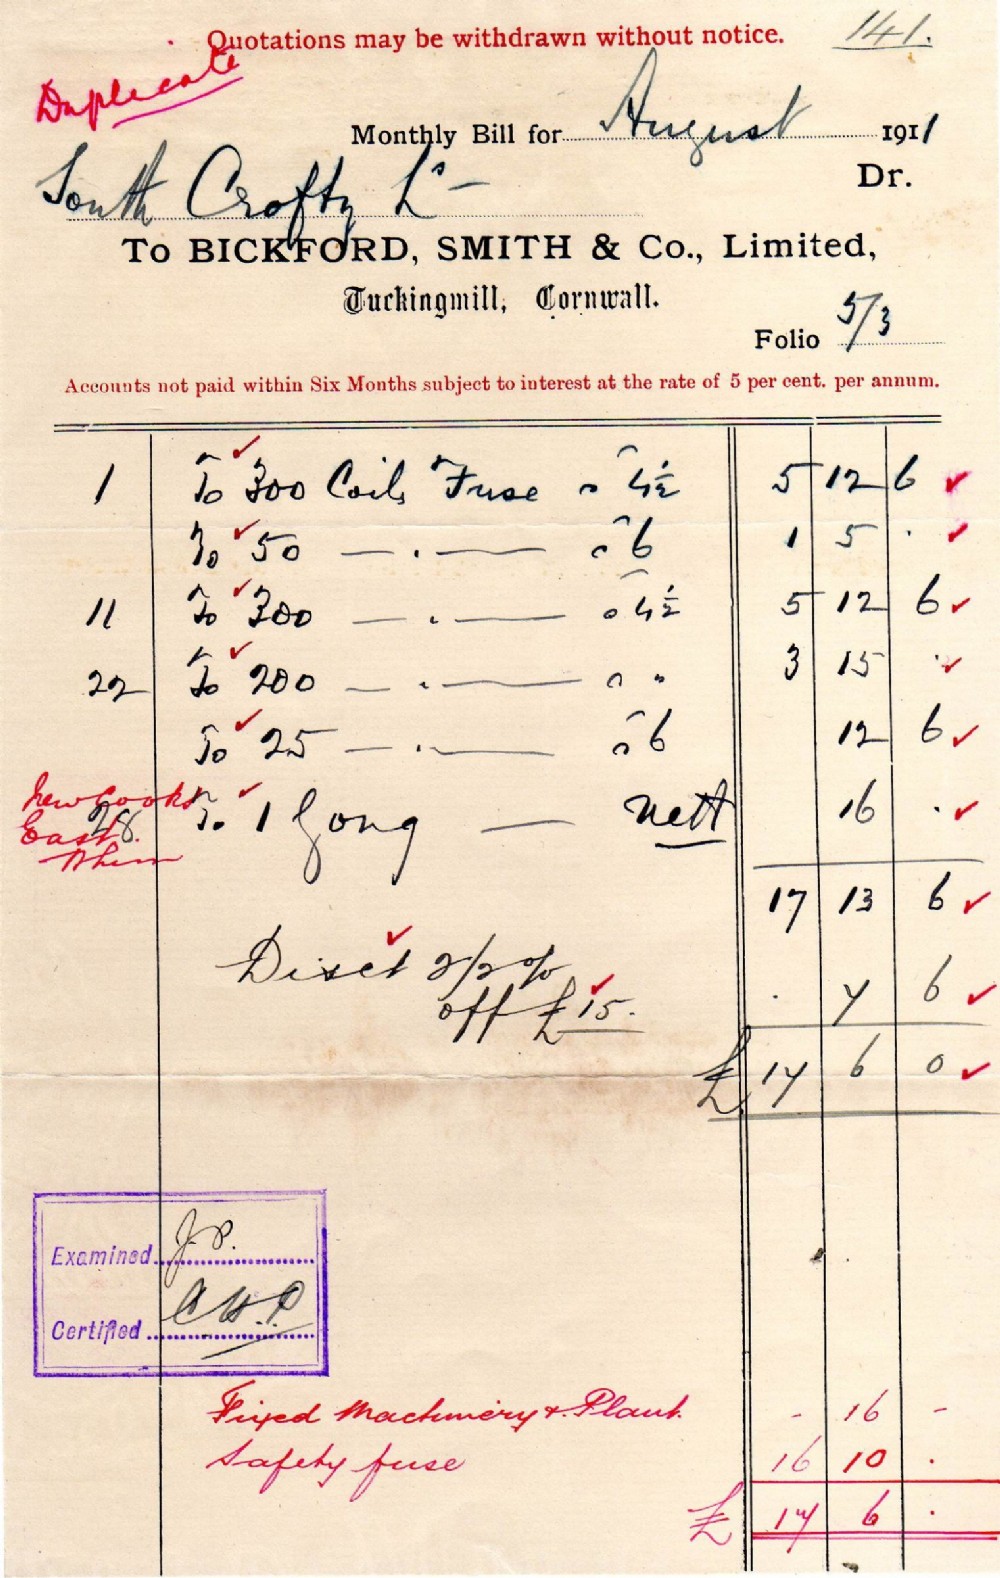 Quotations may be withdrawn without notice.
141.
Duplicate
Monthly Bill for August 1911
South Crofty Ld
Dr.
To BICKFORD, SMITH & Co., Limited,
Tuckingmill, Cornwall.
Folio 5/3
Accounts not paid within Six Months subject to interest at the rate of 5 per cent. per annum.
1 To 300 Coils Fuse a 4½ 5 12 6
To 50 — . — a 6 1 5 .
11 To 300 — . — a 4½ 5 12 6
22 To 200 — . — a " 3 15 .
To 25 — . — a 6 12 6
New Cooks
East
Shim
28 To 1 Gong — Nett 16 .
17 13 6
Disct 2/2 %
off £15. . 7 6
£ 17 6 0
Examined J.P.
Certified
Fixed Machinery & Plant - 16 -
Safety fuse 16 10 .
£ 17 6 .